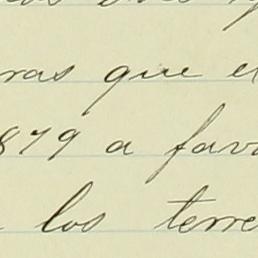 ras que e
879 a fav
los terre